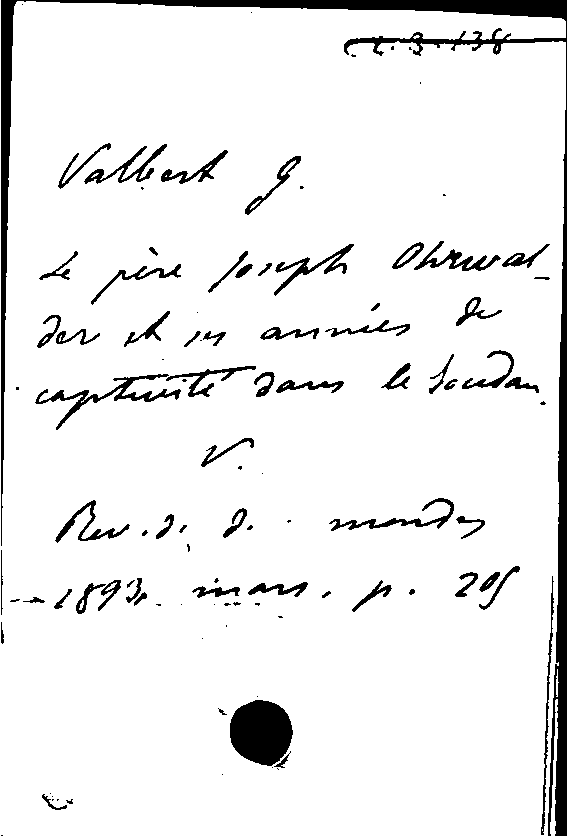 Valbert G.
Le père Joseph Ohrwal-
der et ses années de
captivité dans le Soudan.
V.
Rev. d. d. mondes
1893. mars. p. 205